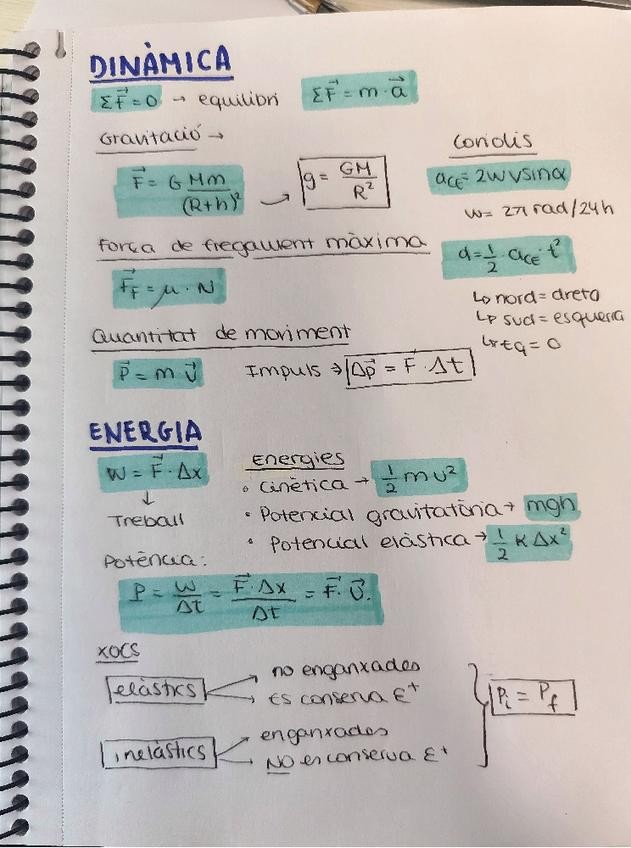 DINÀMICA
ΣF⃗=0 → equilibri
ΣF⃗ = m·a⃗
Gravitació →
F⃗ = G Mm/(R+h)²
g = GM/R²
Coriolis
a_CE = 2wvsinα
w = 2π rad/24h
d = 1/2 a_CE·t²
↳ nord = dreta
↳ sud = esquerra
↳ eq = 0
Força de fregament màxima
F⃗_F = μ·N
Quantitat de moviment
P⃗ = m·v⃗
Impuls → Δp⃗ = F⃗·Δt
ENERGIA
W = F⃗·Δx
↓
Treball
Energies
• Cinètica → 1/2 mv²
• Potencial gravitatòria → mgh
• Potencial elàstica → 1/2 KΔx²
Potència:
P = W/Δt = F⃗·Δx/Δt = F⃗·v⃗.
XOCS
elàstics
no enganxades
Es conserva E⁺
inelàstics
enganxades
NO es conserva E⁺
P_i = P_f